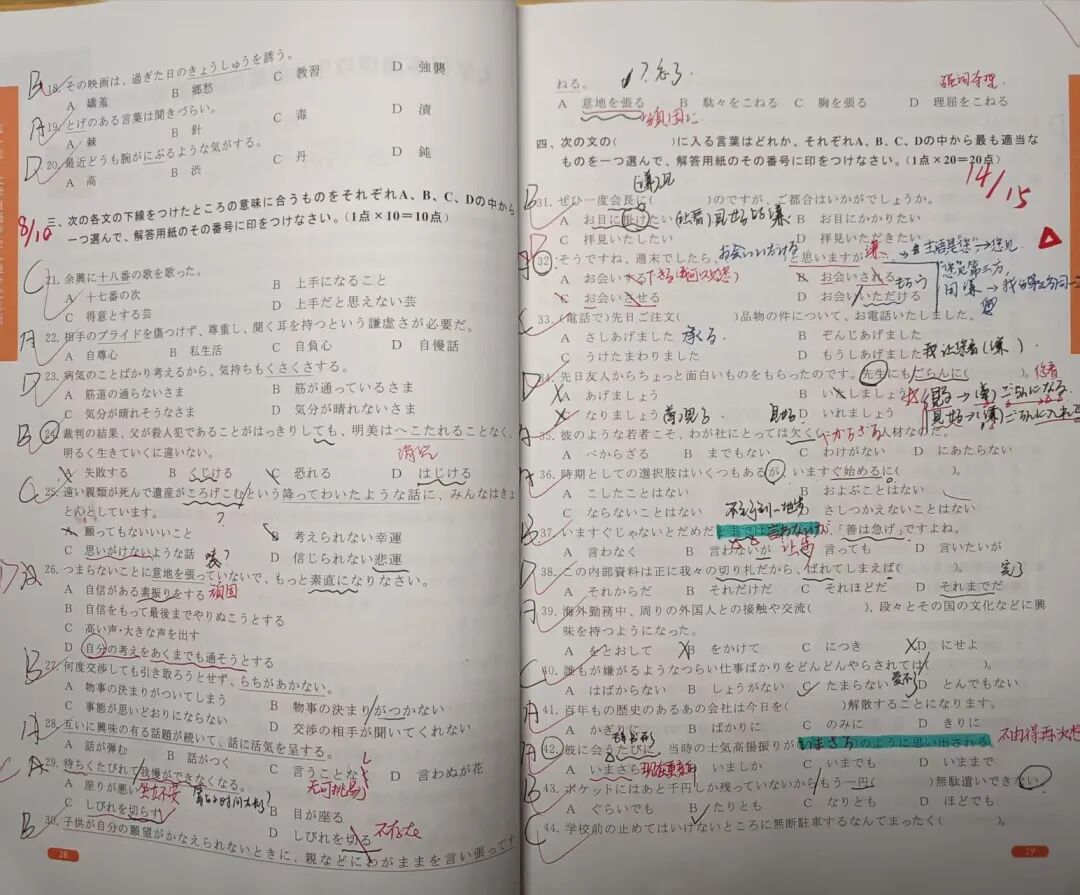 B 18. その映画は、過ぎた日のきょうしゅうを誘う。
A 嬌羞 B 郷愁 C 教習 D 強襲
A 19. とげのある言葉は聞きづらい。
A 棘 B 針 C 毒 D 漬
D 20. 最近どうも腕がにぶるような気がする。
A 高 B 渋 C 丹 D 鈍
8/10
三、次の各文の下線をつけたところの意味に合うものをそれぞれA、B、C、Dの中から
一つ選んで、解答用紙のその番号に印をつけなさい。(1点×10=10点)
C 21. 余興に十八番の歌を歌った。
A 十七番の次 B 上手になること
C 得意とする芸 D 上手だと思えない芸
A 22. 相手のプライドを傷つけず、尊重し、聞く耳を持つという謙虚さが必要だ。
A 自尊心 B 私生活 C 自負心 D 自慢話
D 23. 病気のことばかり考えるから、気持ちもくさくさする。
A 筋道の通らないさま B 筋が通っているさま
C 気分が晴れそうなさま D 気分が晴れないさま
B 24. 裁判の結果、父が殺人犯であることがはっきりしても、明美はへこたれることなく、
明るく生きていくに違いない。
A 失敗する B くじける C 恐れる D はじける
C 25. 遠い親類が死んで遺産がころげこむという降ってわいたような話に、みんなはきょ
とんとしています。
?
A 願ってもないいいこと B 考えられない幸運
C 思いがけないような話 D 信じられない悲運
D 26. つまらないことに意地を張っていないで、もっと素直になりなさい。
A 自信がある素振りをする 頑固
B 自信をもって最後までやりぬこうとする
C 高い声・大きな声を出す
D 自分の考えをあくまでも通そうとする
B 27. 何度交渉しても引き取ろうとせず、らちがあかない。
A 物事の決まりがついてしまう B 物事の決まりがつかない
C 事態が思いどおりにならない D 交渉の相手が聞いてくれない
A 28. 互いに興味の有る話題が続いて、話に活気を呈する。
A 話が弾む B 話がつく C 言うことなし D 言わぬが花
无可挑剔
A 29. 待ちくたびれて我慢ができなくなる。
A 座りが悪い B 目が座る
C しびれを切らす D しびれを切る
不存在
B 30. 子供が自分の願望がかなえられないときに、親などにわがままを言い張ってす
28
ねる。
A 意地を張る B 駄々をこねる C 胸を張る D 理屈をこねる
强词夺理
四、次の文の( )に入る言葉はどれか、それぞれA、B、C、Dの中から最も適当な
ものを一つ選んで、解答用紙のその番号に印をつけなさい。(1点×20=20点)
14/15
B 31. ぜひ一度会長に( )のですが、ご都合はいかがでしょうか。
A お目に掛けたい B お目にかかりたい
C 拝見いたしたい D 拝見いただきたい
32. そうですね、週末でしたら、お会いいただけると思いますが
A お会い下さる B お会いされる
C お会いさせる D お会いいただける
C 33. (電話で)先日ご注文( )品物の件について、お電話いたしました。
A さしあげました B ぞんじあげました
C うけたまわりました D もうしあげました
34. 先日友人からちょっと面白いものをもらったのです。先生にもごらんに( )。
A あげましょう B いたしましょう
C なりましょう D いれましょう
A 35. 彼のような若者こそ、わが社にとっては欠くべからざる人材なのだ。
A べからざる B までもない C わけがない D にあたらない
A 36. 時期としての選択肢はいくつもあるが、いますぐ始めるに( )。
A こしたことはない B およぶことはない
C ならないことはない D さしつかえないことはない
B 37. いますぐじゃないとだめだとまでは言わないが、「善は急げ」ですよね。
A 言わなく B 言わないが C 言っても D 言いたいが
D 38. この内部資料は正に我々の切り札だから、ばれてしまえば( )。
A それからだ B それだけだ C それほどだ D それまでだ
A 39. 海外勤務中、周りの外国人との接触や交流( )、段々とその国の文化などに興
味を持つようになった。
A をとおして B をかけて C につき D にせよ
C 40. 誰もが嫌がるようなつらい仕事ばかりをどんどんやらされては( )。
A はばからない B しょうがない C たまらない D とんでもない
A 41. 百年もの歴史のあるあの会社は今日を( )解散することになります。
A かぎりに B ばかりに C のみに D きりに
A 42. 彼に会うたびに、当時の士気高揚振りがいまさらのように思い出される
A いまさら B いましか C いまでも D いままで
B 43. ポケットにはあと千円しか残っていないから、もう一円( )無駄遣いできない
A ぐらいでも B たりとも C なりとも D ほどでも
C 44. 学校前の止めてはいけないところに無断駐車するなんてまったく(
29